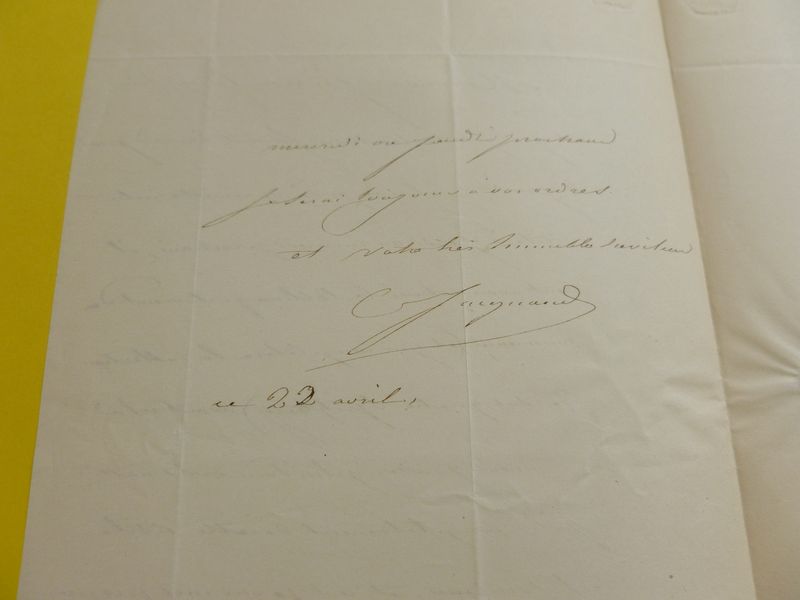 mercredi ou jeudi prochain
je serai toujours à vos ordres.
et votre très humble serviteur
C Jacquand
ce 22 avril,